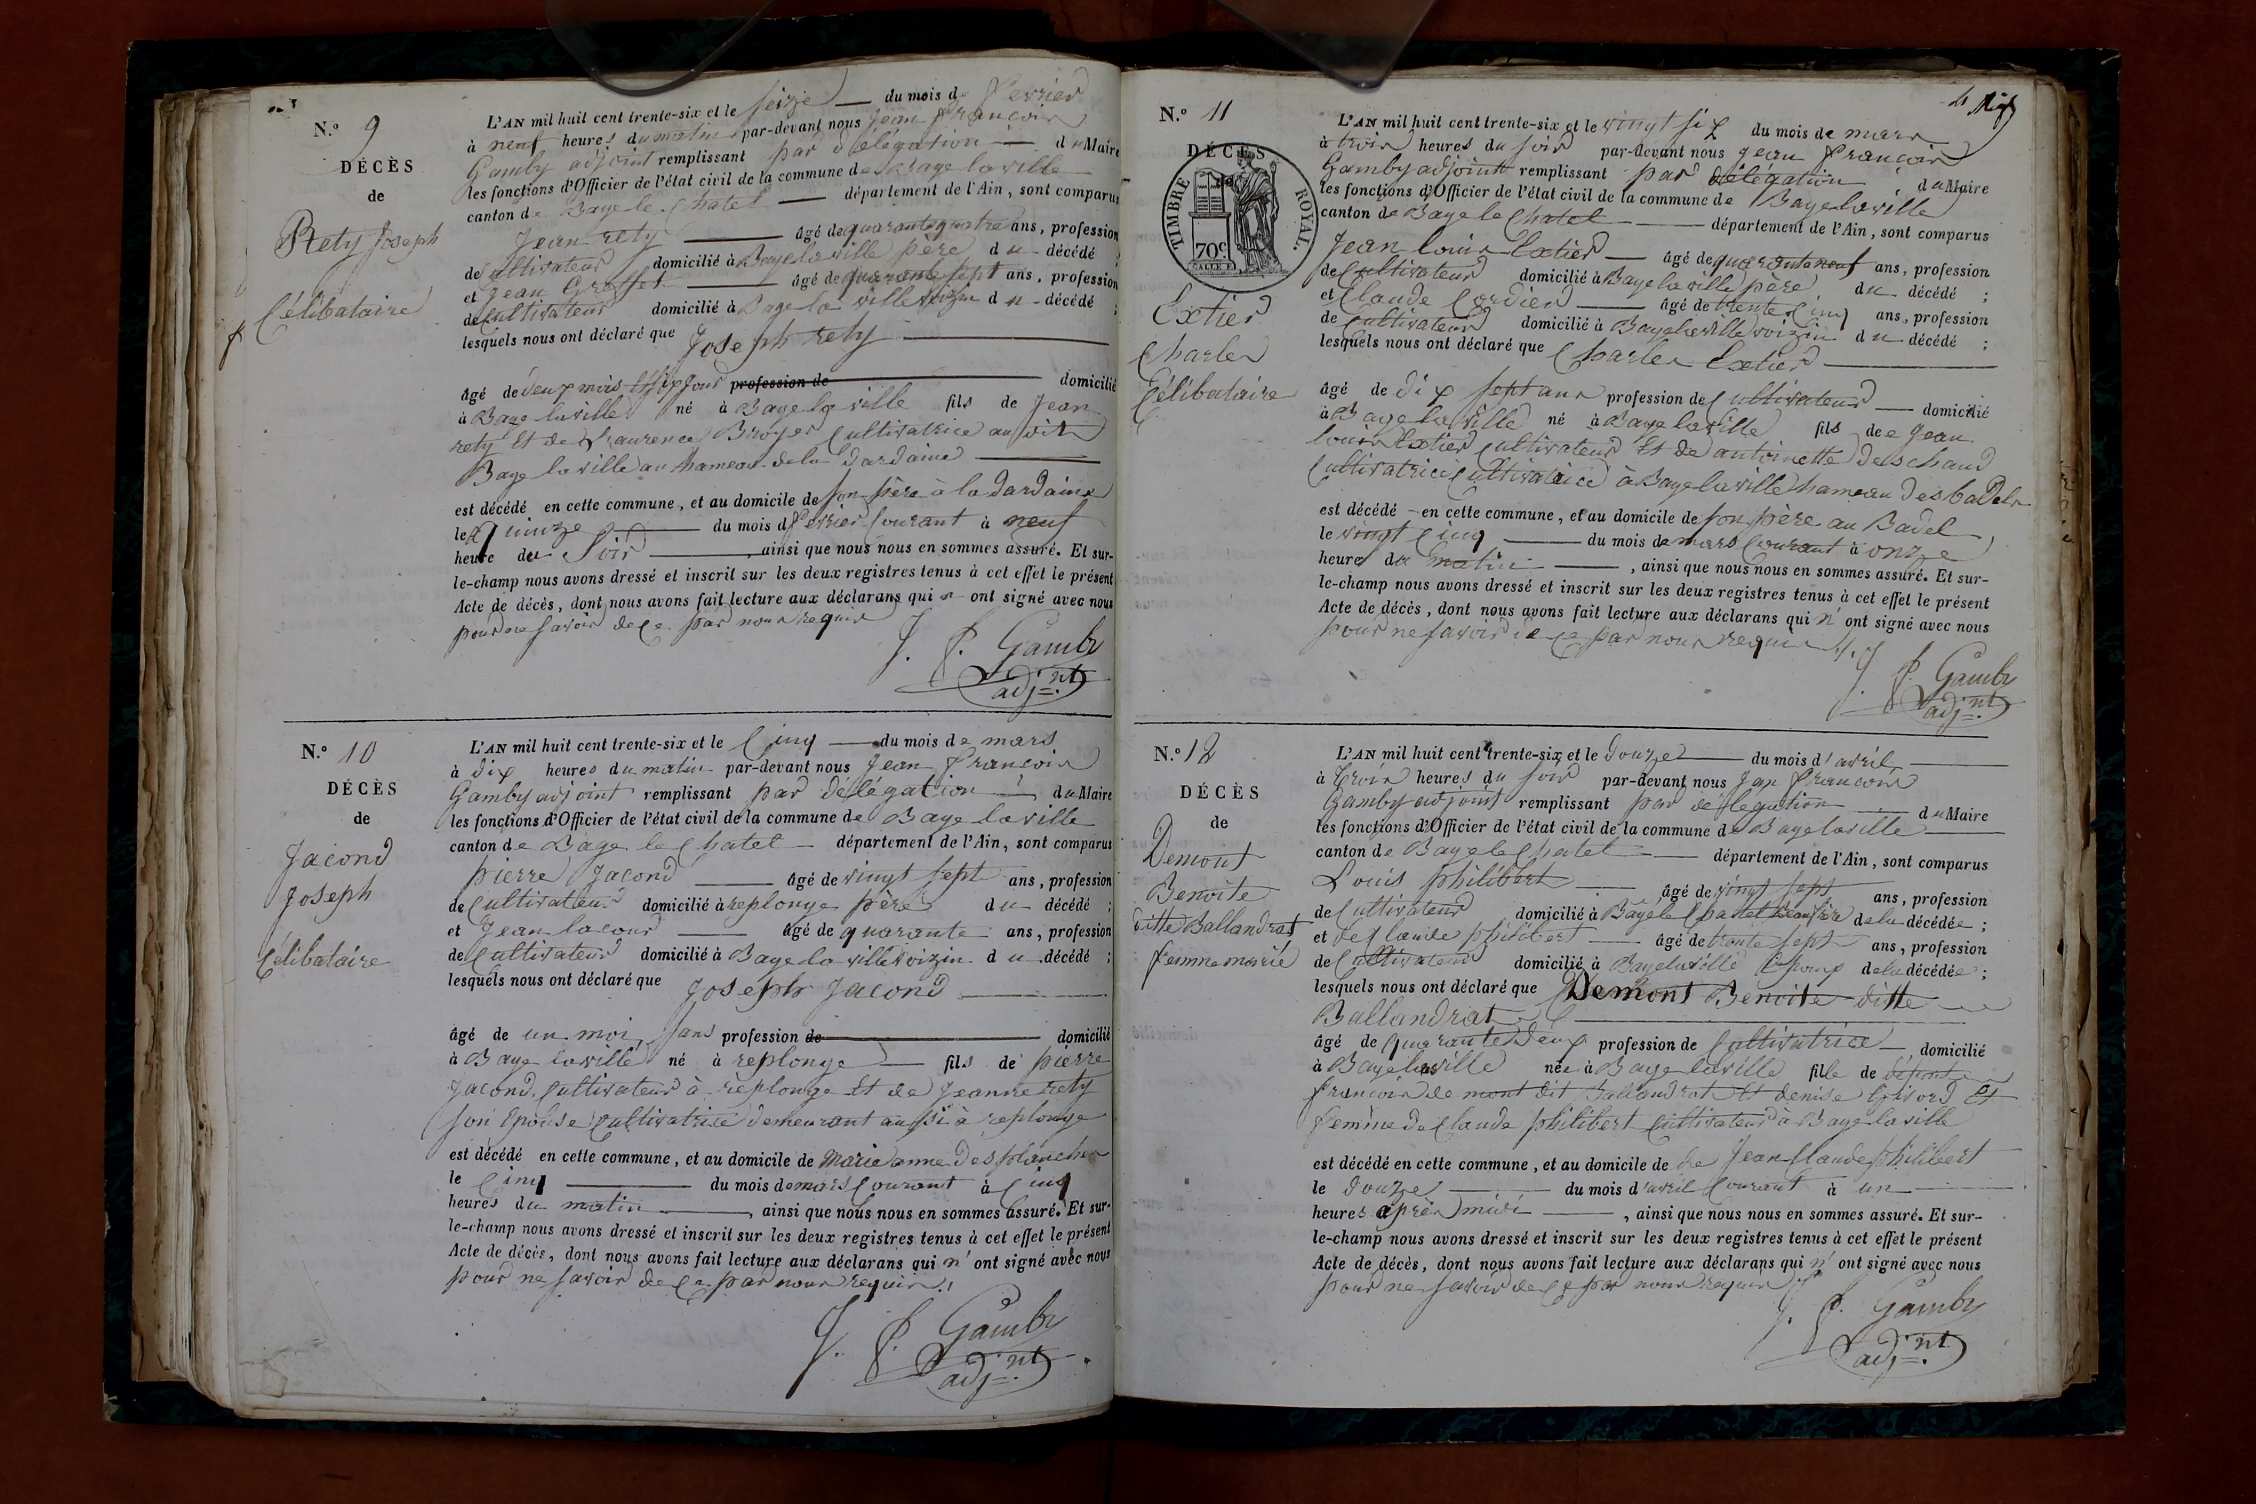 N.º 9
DÉCÈS
de
Rety Joseph
Célibataire
L'AN mil huit cent trente-six et le seize du mois de fevrier
à neuf heures du matin par-devant nous jean françois
Gamby adjoint remplissant par délégation du Maire
les fonctions d'Officier de l'état civil de la commune de Bage la ville
canton de Bage le Chatel département de l'Ain, sont comparus
Jean rety âgé de quarante quatre ans, profession
de Cultivateur domicilié à Bage la ville père du décédé ;
et jean Groffet âgé de quarante sept ans, profession
de Cultivateur domicilié à Bage la ville voizin du décédé ;
lesquels nous ont déclaré que Joseph rety
âgé de deux mois et six jour profession de domicilié
à Bage laville né à Bage la ville fils de Jean
rety Et de Laurence Broyer Cultivatrice au dit
Bage la ville au hameau de la Dardaine
est décédé en cette commune, et au domicile de son père à la dardaine
le quinze du mois de fevrier Courant à neuf
heure du Soir, ainsi que nous nous en sommes assuré. Et sur-
le-champ nous avons dressé et inscrit sur les deux registres tenus à cet effet le présent
Acte de décès, dont nous avons fait lecture aux déclarans qui n ont signé avec nous
pour ne savoir de ce par nous requis
J. f. Gamby
adj.nt
N.º 10
DÉCÈS
de
Jacond
Joseph
Célibataire
L'AN mil huit cent trente-six et le Cinq du mois de mars
à dix heures du matin par-devant nous Jean françois
Gamby adjoint remplissant par délégation du Maire
les fonctions d'Officier de l'état civil de la commune de Bage la ville
canton de Bage le Chatel département de l'Ain, sont comparus
pierre Jacond âgé de vingt sept ans, profession
de Cultivateur domicilié à replonge père du décédé ;
et Jean lacour âgé de quarante ans, profession
de Cultivateur domicilié à Bage la ville voizin du décédé ;
lesquels nous ont déclaré que Joseph Jacond
âgé de un moi, sans profession de domicilié
à Bage la ville né à replonge fils de pierre
Jacond Cultivateur à replonge Et de Jeanne rety
son Epouse Cultivatrice demeurant aussi à replonge
est décédé en cette commune, et au domicile de marie anne Desplanches
le Cinq du mois de mars Courant à Cinq
heures du matin, ainsi que nous nous en sommes assuré. Et sur-
le-champ nous avons dressé et inscrit sur les deux registres tenus à cet effet le présent
Acte de décès, dont nous avons fait lecture aux déclarans qui n' ont signé avec nous
pour ne savoir de ce par nous requis
J. f. Gamby
adj.nt
4
N.º 11
DÉCÈS
TIMBRE ROYAL.
70c.
Extier
Charles
Célibataire
L'AN mil huit cent trente-six et le vingt six du mois de mars
à trois heures du soir par-devant nous jean françois
Gamby adjoint remplissant par délégation du Maire
les fonctions d'Officier de l'état civil de la commune de Bage la ville
canton de Bage le Chatel département de l'Ain, sont comparus
Jean louis Extier âgé de quarante neuf ans, profession
de Cultivateur domicilié à Bage la ville père du décédé ;
et Claude Cordier âgé de trente Cinq ans, profession
de Cultivateur domicilié à Bage la ville voizin du décédé ;
lesquels nous ont déclaré que Charles Extier
âgé de dix sept ans profession de Cultivateur domicilié
à Bage la ville né à Bage la ville fils de jean
louis Extier Cultivateur Et de antoinette Deschaud
Cultivatrice Cultivatrice à Bage la ville hameau des badels
est décédé en cette commune, et au domicile de son père au Badel
le vingt Cinq du mois de mars Courant à onze
heures du matin, ainsi que nous nous en sommes assuré. Et sur-
le-champ nous avons dressé et inscrit sur les deux registres tenus à cet effet le présent
Acte de décès, dont nous avons fait lecture aux déclarans qui n' ont signé avec nous
pour ne savoir de ce par nous requis
J. f. Gamby
adj.nt
N.º 12
DÉCÈS
de
Demont
Benoite
ditte Ballandrat
femme marié
L'AN mil huit cent trente-six et le douze du mois d'avril
à trois heures du soir par-devant nous Jean françois
Gamby adjoint remplissant par délégation du Maire
les fonctions d'Officier de l'état civil de la commune de Bage la ville
canton de Bage le Chatel département de l'Ain, sont comparus
Louis philibert âgé de vingt sept ans, profession
de Cultivateur domicilié à Bage le Chatel beaufrère de la décédée ;
et de Claude philibert âgé de trente sept ans, profession
de Cultivateur domicilié à Bage la ville Epoux de la décédée ;
lesquels nous ont déclaré que Demont Benoite ditte
Ballandrat
âgé de quarante deux profession de Cultivatrice domicilié
à Bage la ville née à Bage la ville fille de défunt
françois de mont dit Ballandrat Et denise Givord Et
femme de Claude philibert Cultivateur à Bage la ville
est décédé en cette commune, et au domicile de de Jean Claude philibert
le douze du mois d'avril Courant à un
heures après midi, ainsi que nous nous en sommes assuré. Et sur-
le-champ nous avons dressé et inscrit sur les deux registres tenus à cet effet le présent
Acte de décès, dont nous avons fait lecture aux déclarans qui n' ont signé avec nous
pour ne savoir de ce par nous requis
J. f. Gamby
adj.nt